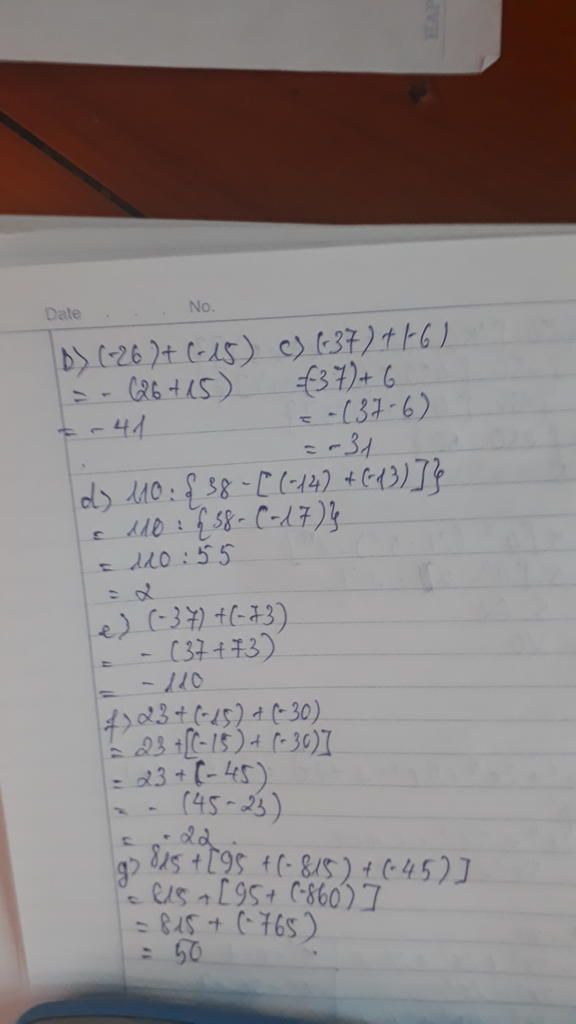 HAP
Date . . . No.
b) (-26) + (-15) c) (-37) + |-6|
= - (26 + 15) = (-37) + 6
= - 41 = - (37 - 6)
= - 31
d) 110 : { 38 - [ (-14) + (-13) ] }
= 110 : { 38 - (-17) }
= 110 : 55
= 2
e) (-37) + (-73)
= - (37 + 73)
= - 110
f) 23 + (-15) + (-30)
= 23 + [(-15) + (-30)]
= 23 + (-45)
= - (45 - 23)
= - 22.
g) 815 + [95 + (-815) + (-45)]
= 815 + [95 + (-860)]
= 815 + (-765)
= 50